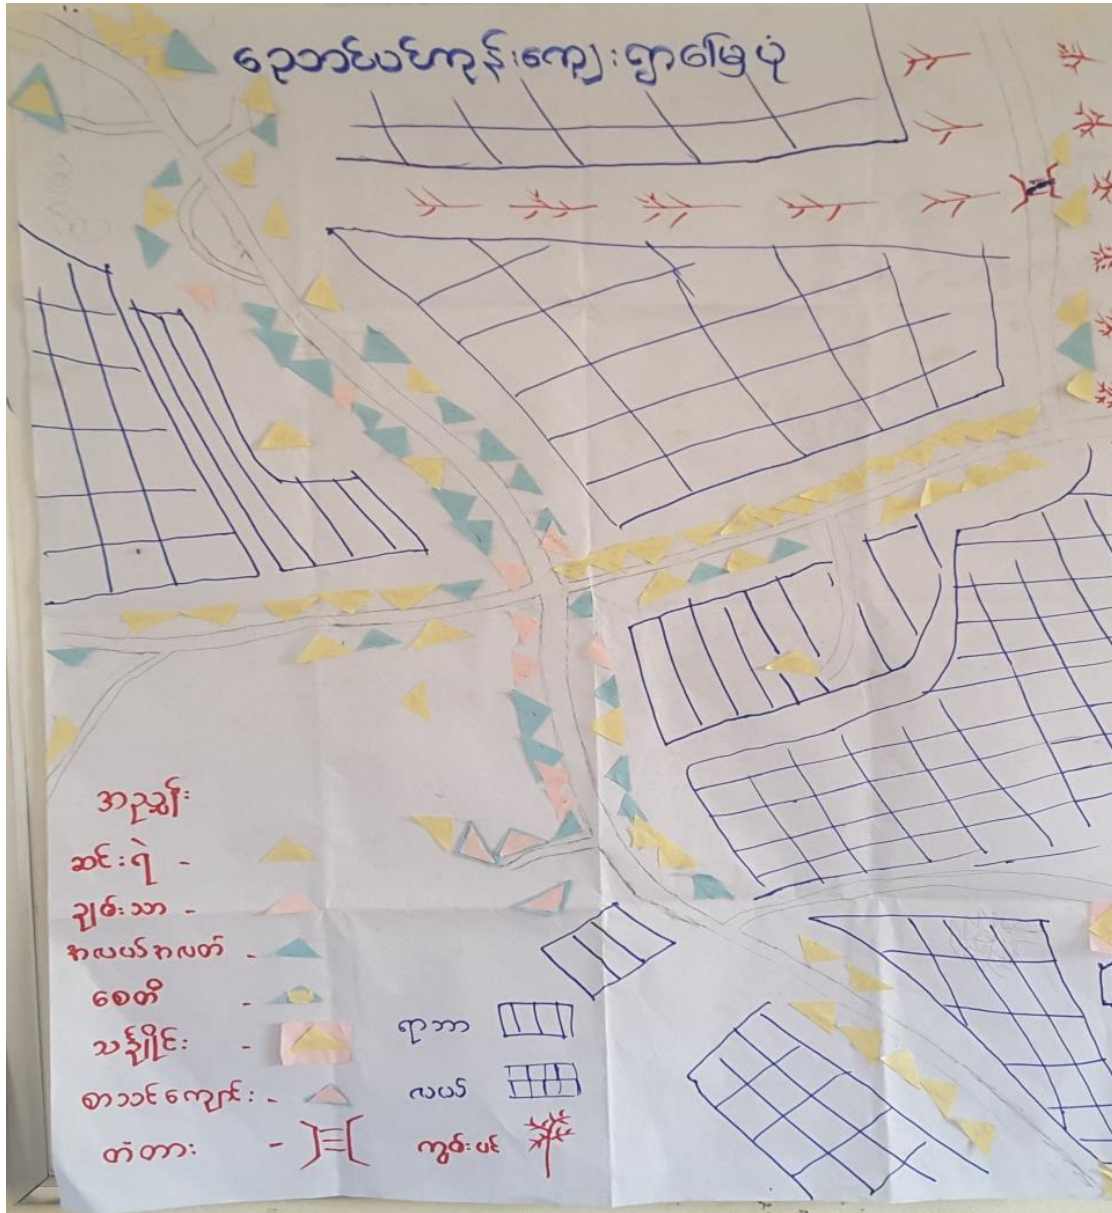 ညောင်ပင်ကုန်းကျေးရွာမြေပုံ
အညွှန်း
ဆင်းရဲ -
ချမ်းသာ -
အလယ်အလတ် -
စေတီ -
သင်္ချိုင်း -
စာသင်ကျောင်း -
တံတား -
ရာဘာ
လယ်
ကွမ်းပင်